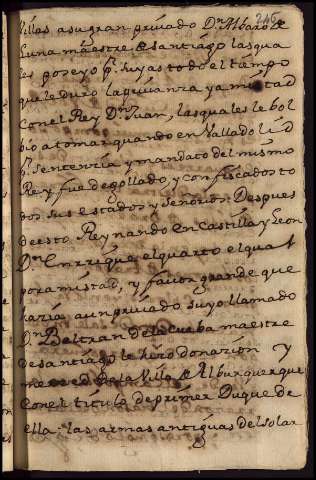 246
Villas a su gran privado Dn. Albaro de
Luna maestre de santiago las qua
les poseyo pr. suyas todo el tiempo
que le duro la privanza y amistad
con el Rey Dn. Juan, las quales le bol
bio a tomar quando en Vallado lid
pr. sentencia y mandato del mismo
Rey fue degollado, y confiscados to
dos sus estados y señorios: Despues
de esto Reynando en Castilla y Leon
Dn. Enrrique el quarto el qual
por amistad, y favor grande que
haria a un privado suyo llamado
Dn. Beltran de la Cueba maestre
de santiago le hizo donazion y
merced de la Villa de Alburquerque
con el titulo de primer Duque de
ella: las armas antiguas del solar